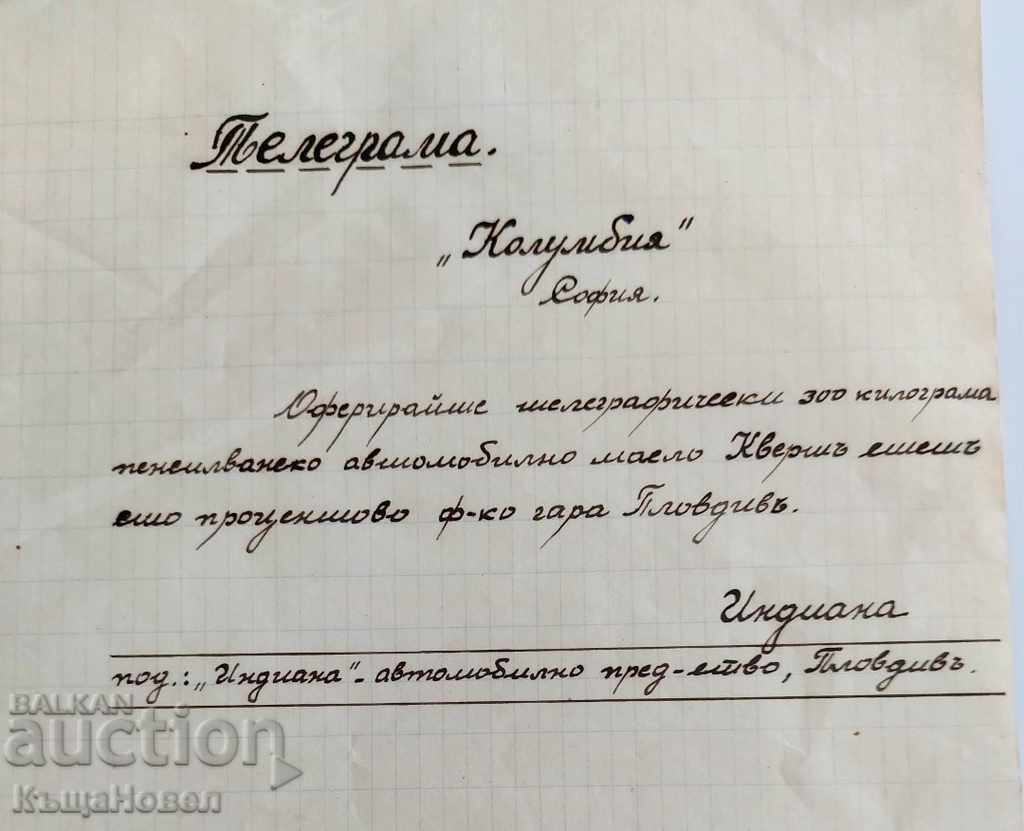 Телеграма.
„Колумбия"
София.
Оферирайте телеграфически 300 килограма
пенсилванско автомобилно масло Квертъ стетъ
сто процентово ф-ко гара Пловдивъ.
Индиана
под.: „Индиана" - автомобилно пред-ство, Пловдивъ.
BALKAN
auction
КъщаНовел